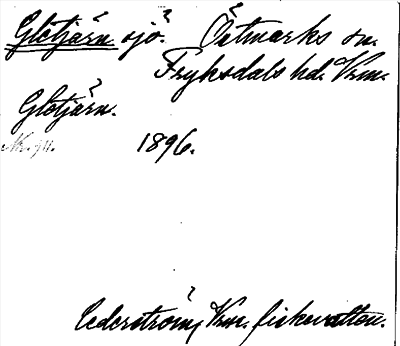 Glötjärn sjö. Östmarks sn.
Fryksdals hd. Vrm.
Glötjärn.
1896.
Cederström, Vrm. fiskevatten.